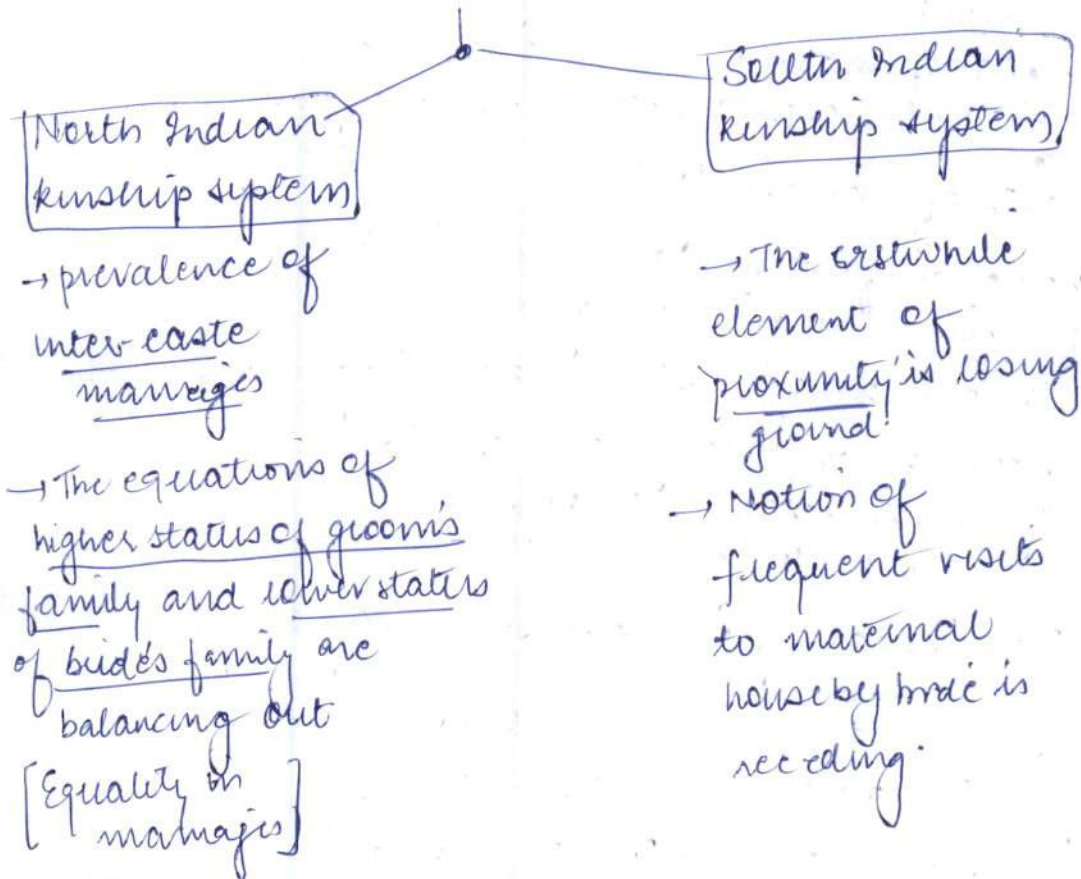 North Indian
kinship system
→ prevalence of
inter-caste
marriages
→ The equations of
higher status of groom's
family and lower status
of bride's family are
balancing out
[Equality in
marriages]
South Indian
kinship system
→ The erstwhile
element of
'proximity' is losing
ground.
→ Notion of
frequent visits
to maternal
house by bride is
receding.